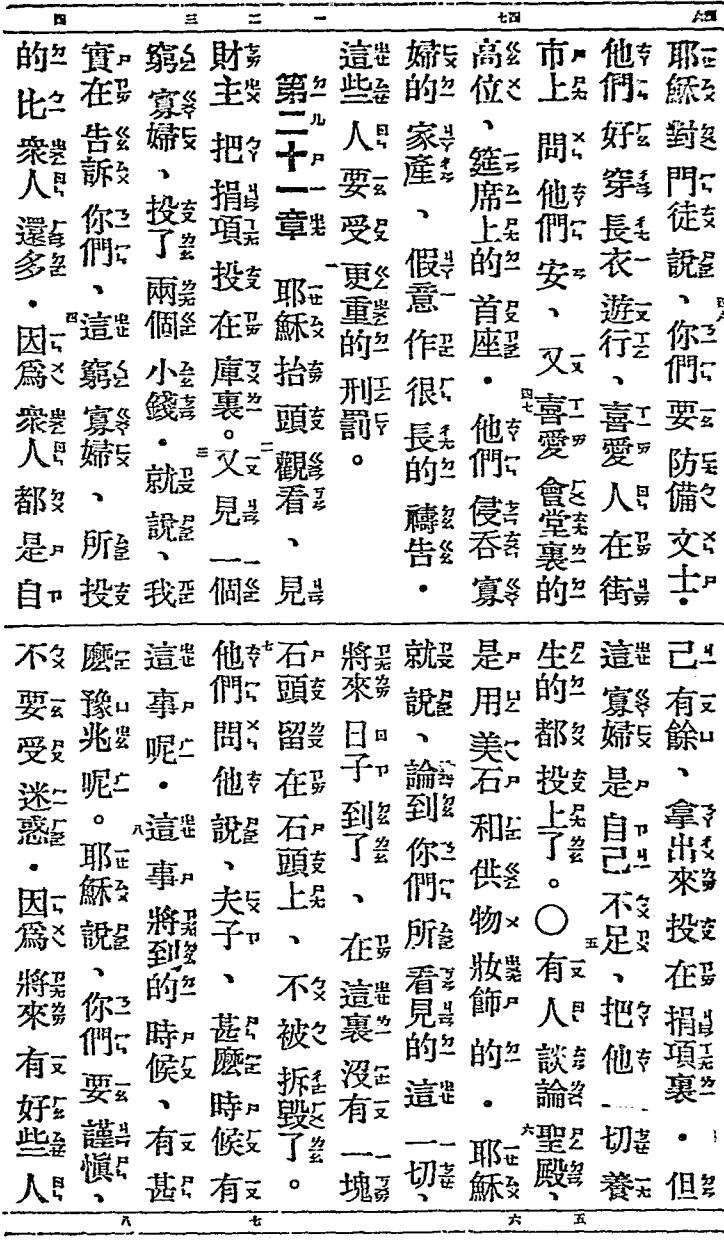 耶穌對門徒說、你們要防備文士．
他們好穿長衣遊行、喜愛人在街
市上問他們安、又喜愛會堂裏的
高位、筵席上的首座．他們侵吞寡
婦的家產、假意作很長的禱告．
這些人要受更重的刑罰。
第二十一章 耶穌抬頭觀看、見
財主把捐項投在庫裏。又見一個
窮寡婦、投了兩個小錢．就說、我
實在告訴你們、這窮寡婦、所投
的比衆人還多．因爲衆人都是自
己有餘、拿出來投在捐項裏．但
這寡婦是自己不足、把他一切養
生的都投上了。〇有人談論聖殿、
是用美石和供物妝飾的．耶穌
就說、論到你們所看見的這一切、
將來日子到了、在這裏沒有一塊
石頭留在石頭上、不被拆毀了。
他們問他說、夫子、甚麼時候有
這事呢．這事將到的時候、有甚
麼豫兆呢。耶穌說、你們要謹愼、
不要受迷惑．因爲將來有好些人